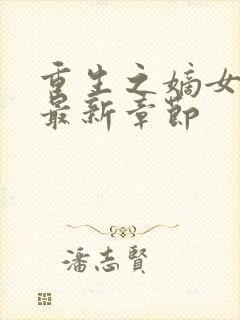 重生之嫡女
最新章节
潘志賢